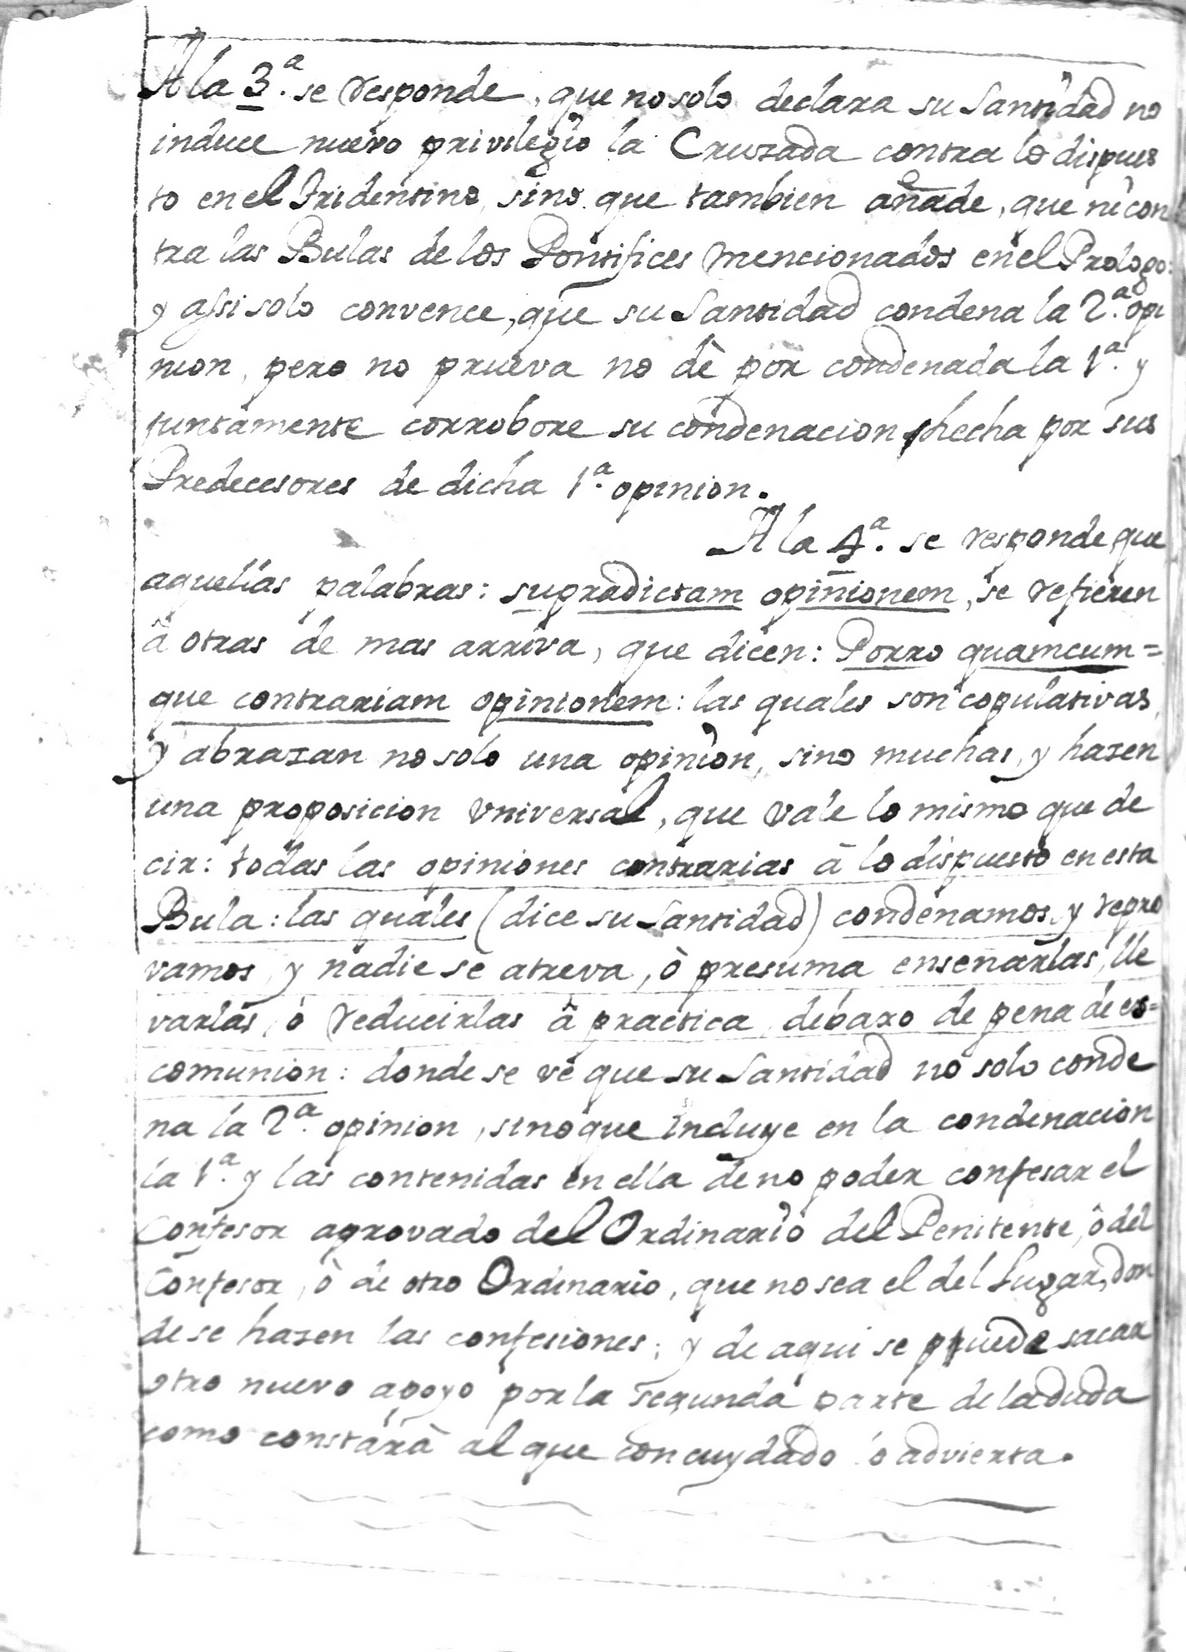 A la 3.ª se responde, que no solo declara su Santidad no
induce nuevo privilegio la Cruzada contra lo dispues
to en el Tridentino, sino que tambien añade, que ni con
tra las Bulas de los Pontifices mencionados en el Prologo:
y assi solo convence, que su Santidad condena la 2.ª opi
nion, pero no prueva no dè por condenada la 1.ª y
juntamente corrobore su condenacion hecha por sus
Predecesores de dicha 1.ª opinion.
A la 4.ª se responde que
aquellas palabras: supradictam opinionem, se refieren
â otras de mas arriva, que dicen: Porro quamcum=
que contrariam opinionem: las quales son copulativas,
y abrazan no solo una opinion, sino muchas, y hazen
una proposicion vniversal, que vale lo mismo que de
cir: todas las opiniones contrarias â lo dispuesto en esta
Bula: las quales (dice su Santidad) condenamos, y repro
vamos, y nadie se atreva, ò presuma enseñarlas, lle
varlas, ò reducirlas â practica, debaxo de pena de es=
comunion: donde se vè que su Santidad no solo conde
na la 2.ª opinion, sino que incluye en la condenacion
la 1.ª y las contenidas en ella de no poder confesar el
Confesor aprovado del Ordinario del Penitente, ô del
Confesor, ò de otro Ordinario, que no sea el del Lugar, don
de se hazen las confesiones; y de aqui se puede sacar
otro nuevo apoyo por la segunda parte de la duda
como constarà al que con cuydado lo advierta.